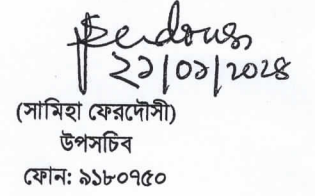 Ferdousi
২১/০১/২০২৪
(সামিহা ফেরদৌসী)
উপসচিব
ফোন: ৯১৮০৭৫০